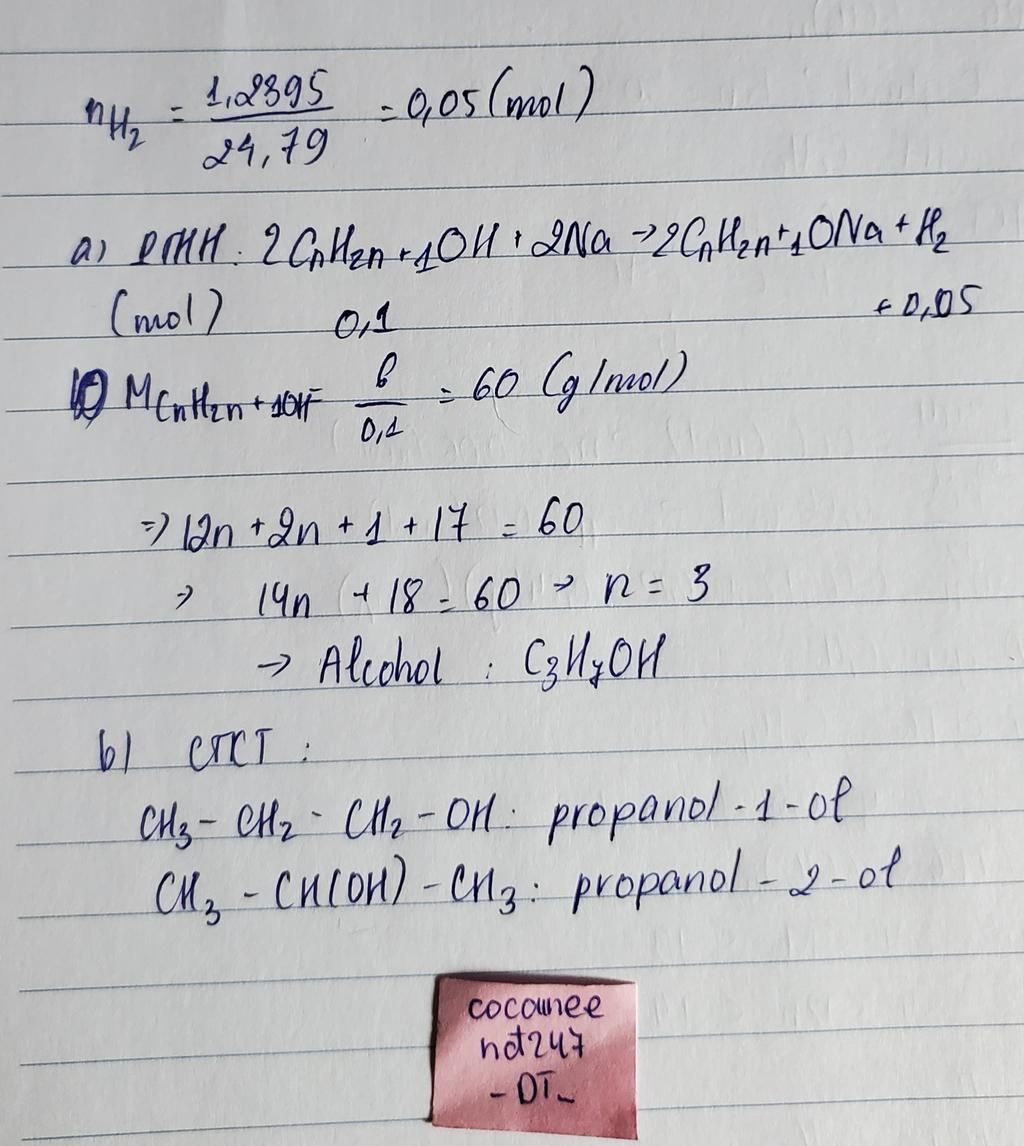 nH₂ = 1,2395 / 24,79 = 0,05 (mol)
a) PTHH: 2CnH2n+1OH + 2Na → 2CnH2n+1ONa + H₂
(mol) 0,1 ← 0,05
M CnH2n+1OH = 6 / 0,1 = 60 (g/mol)
=> 12n + 2n + 1 + 17 = 60
→ 14n + 18 = 60 → n = 3
→ Alcohol : C₃H₇OH
b) CTCT :
CH₃ - CH₂ - CH₂ - OH : propanol - 1 - ol
CH₃ - CH(OH) - CH₃ : propanol - 2 - ol
cocounee
ndt247
- DT_